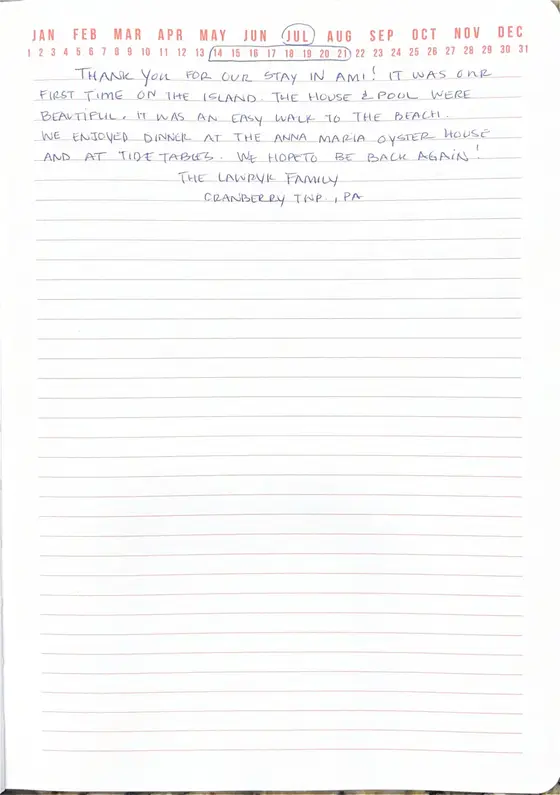 JAN FEB MAR APR MAY JUN JUL AUG SEP OCT NOV DEC
1 2 3 4 5 6 7 8 9 10 11 12 13 14 15 16 17 18 19 20 21 22 23 24 25 26 27 28 29 30 31
THANK YOU FOR OUR STAY IN AMI! IT WAS OUR
FIRST TIME ON THE ISLAND. THE HOUSE & POOL WERE
BEAUTIFUL. IT WAS AN EASY WALK TO THE BEACH.
WE ENJOYED DINNER AT THE ANNA MARIA OYSTER HOUSE
AND AT TIDE TABLES. WE HOPE TO BE BACK AGAIN!
THE FAMILY
CRANBERRY TWP., PA